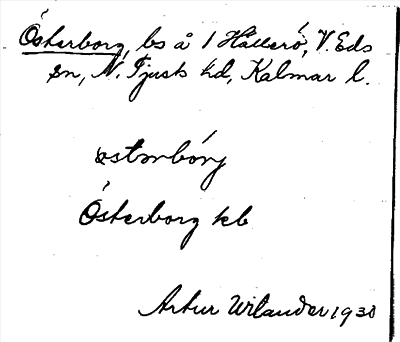 Österborg, ls å 1 Hällerö, V. Eds
sn, N. Tjusts hd, Kalmar l.
östərbórj
Österborg kb
Artur Wilander 1930